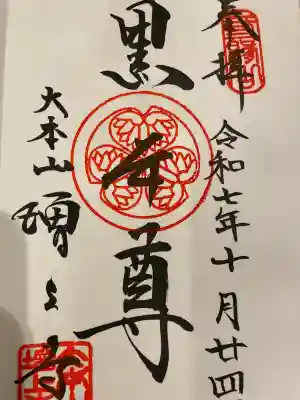 奉拝
令和七年十月廿四
黒本尊
大本山
増上寺